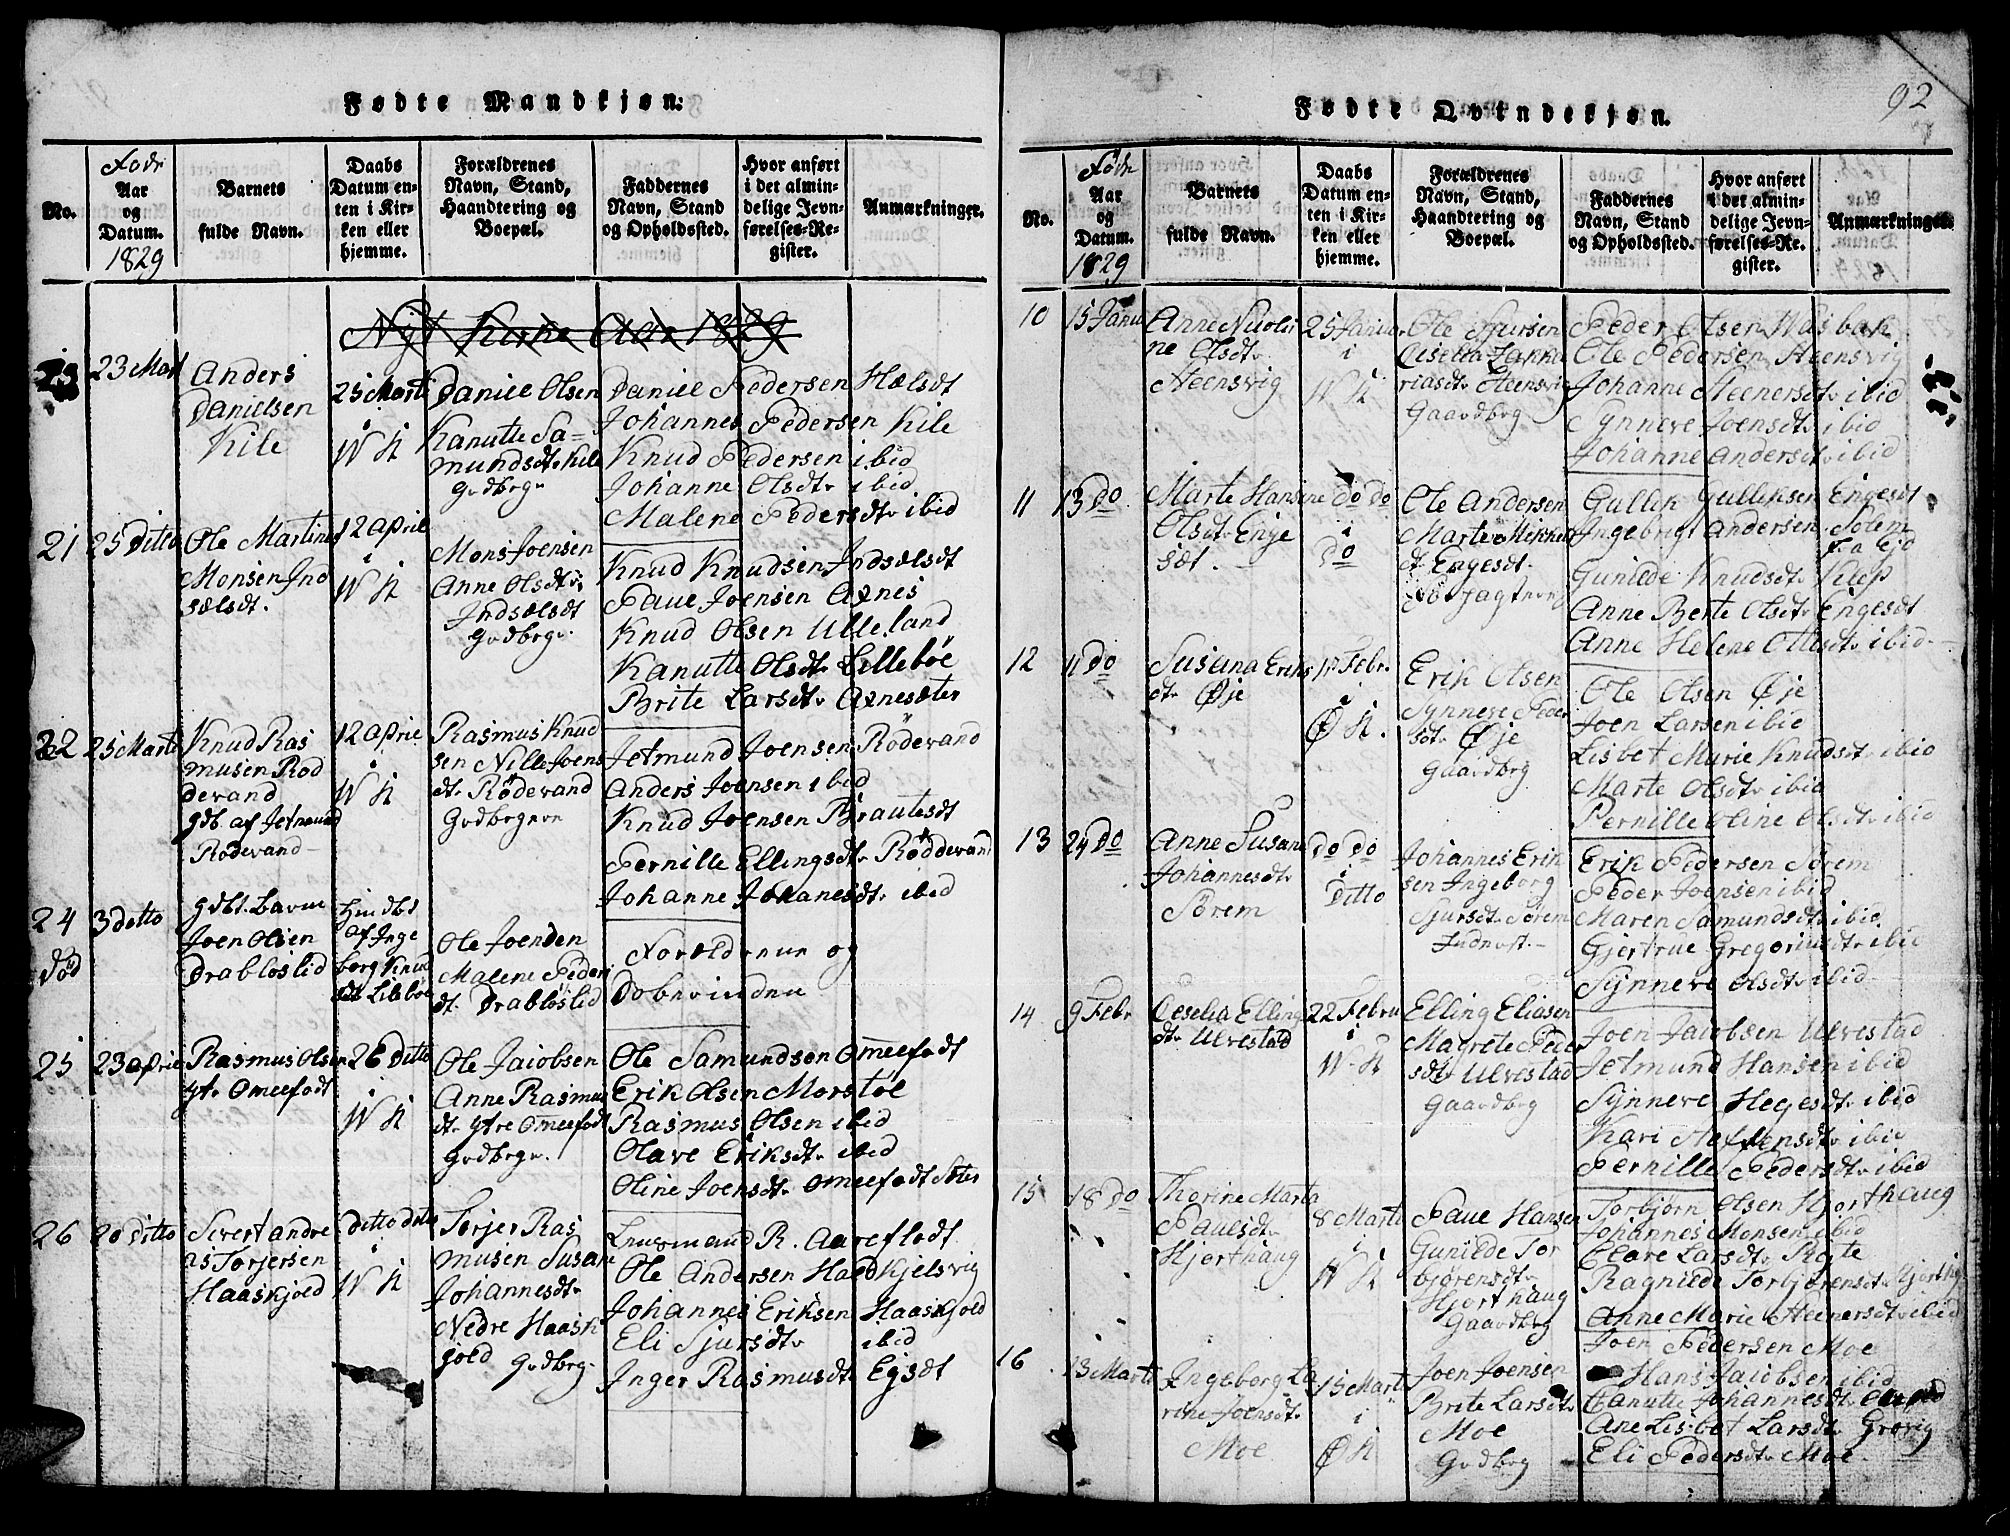 Fødte Mandkjøn.
No.
Fødr
Aar
og
Datum.
1829
Barnets
fulde Navn.
Daabs
Datum en-
ten i Kir-
ken eller
hjemme.
Forældrenes
Navn, Stand,
Haandtering og
Boepæl.
Faddernes
Navn, Stand
og Opholdssted.
Hvor anført
i det almin-
delige Jevn-
førelses-Re-
gister.
Anmærkninger.
Nyt Kirke Aar 1829
23 Mart
Anders
Danielsen
Kile
25 Marti
i
W K
Daniel Olsen
Kanutte Sa=
mundsdtr Kile
Grdbrgr
Daniel Pedersen Hælsdt
Johannes Pedersen Kile
Knud Pedersen ibid
Johanne Olsdtr ibid
Malene Pedersdtr ibid
21
25 Ditto
Ole Martinus
Monsen Ind
sælsdt.
12 April
i
W K
Mons Joensen
Anne Olsdtr
Indsælsdt
Grdbrgr.
Knud Knudsen Indsælsdt
Paul Joensen Axnes
Knud Olsen Ulleland
Kanutte Olsdtr Lilleböe
Brite Larsdtr Axnesæter
22
25 Marti
Knud Ras
musen Rod
devand
gdb. af Jetmund
Rodevand
12 April
i
W K
Rasmus Knud
sen Nille Joens
dtr Rödevand
Grdbrgrn
Jetmund Joensen Rödevand
Anders Joensen ibid
Knud Joensen Brautesdt
Pernille Ellingsdtr Röddevand
Johanne Johanesdtr ibid
24
Død
3 Ditto
gdbt. Barn
Joen Olsen
Drabløslid
Hindbt
af Inge
borg Knud
sdt Lilebøe
Ole Joensen
Malene Peders
dtr Drabløslid
Forældrene og
Döberinden
25
23 April
Rasmus Olsen
ytr Omeefodt
26 Ditto
i
W K
Ole Jacobsen
Anne Rasmus
dtr ytre Omeefodt
Grdbrgr.
Ole Samundsøn Omeefodt
Erik Olsen Morstöl
Rasmus Olsen ibid
Olave Eriksdtr ibid
Oline Joensdtr Omeefodt Seter
26
20 Ditto
Sivert Andre
as Torjersen
Haaskjold
Ditto Ditto
i
W K
Torjer Ras
musen Susane
Johannesdtr
Nedre Haask
jold Grdbrg.
Lensmand R. Aareflodt
Ole Andersen Haedkjelsvig
Johannes Eriksen Haaskjold
Eli Sjursdtr ibid
Inger Rasmusdtr Egsdt
Fødte Qvindekjøn.
92
No.
Fødr
Aar
og
Datum.
1829
Barnets
fulde Navn.
Daabs
Datum en-
ten i Kir-
ken eller
hjemme.
Forældrenes
Navn, Stand,
Haandtering og
Boepæl.
Faddernes
Navn, Stand
og Opholdssted.
Hvor anført
i det almin-
delige Jevn-
førelses-Re-
gister.
Anmærkninger.
10
15 Janu
Anne Nicoli
ne Olsdtr
Steensvig
25 Januar
i
W K
Ole Sjursen
Cisellia Zanna
riasdtr Steensvig
Gaardbrg
Peder Olsen Wasbak
Ole Pedersen Steensvig
Johanne Steenersdtr ibid
Synneve Joensdtr ibid
Johanne Andersdtr ibid
11
13 Do
Marte Hansine
Olsdtr Enge
sdt.
Do Do
i
Do
Ole Andersen
Marte Mikkels
dtr Engesdt.
Gullik Gulliksen Engesdt
Ingebrigt Andersen Solem
Gunilde Knudsdtr Kilsp
Anne Berte Olsdtr Engesdt
Anne Helene Ottesdtr ibid
12
11 Do
Susana Eriks
dtr Øje
1 Febr.
i
Ø K.
Erik Olsen
Synneve Peder
sdtr Øje
Gaardbrg
Ole Olsen Øje
Joen Larsen ibid
Lisbet Marie Knudsdtr ibid
Marte Olsdtr ibid
Pernille Oline Olsdtr ibid
13
24 Do
Anne Susane
Johannesdtr
Sörem
Do Do
i
Ditto
Johannes Erik
sen Ingeborg
Sjursdtr Sörem
Indnest.
Erik Pedersen Sörem
Peder Joensen ibid
Maren Samundsdtr ibid
Gjertrue Gregoriusdtr ibid
Synneve Olsdtr ibid
14
9 Febr
Ceselia Elling
dtr Ulvestad
22 Febru
i
W K
Elling Eliasen
Magrete Peder
sdtr Ulvestad
Gaardbrg
Joen Jacobsen Ulvestad
Jetmund Hansen ibid
Synneve Hegesdtr ibid
Kari Steffensdtr ibid
Pernille Pedersdtr ibid
15
18 Do
Thorine Marta
Paulsdtr
Hjorthaug
8 Marti
i
W K
Paul Hansen
Gunilde Tor
björensdtr
Hjorthaug
Gaardbrg
Torbjørn Olsen Hjorthaug
Johannes Monsen ibid
Olave Larsdtr Rote
Ragnilde Torbjörensdtr Hjorthg
Anne Marie Steenersdtr ibid
16
13 Marti
Ingeborg La
rine Joensdtr
Moe
15 Marti
i
Ø K
Joen Joensen
Brite Larsdtr
Moe
Grdbrg
Joen Pedersen Moe
Hans Jacobsen ibid
Kanutte Johannesdtr
Ane Lisbet Larsdtr Grøvig
Eli Pedersdtr Moe.